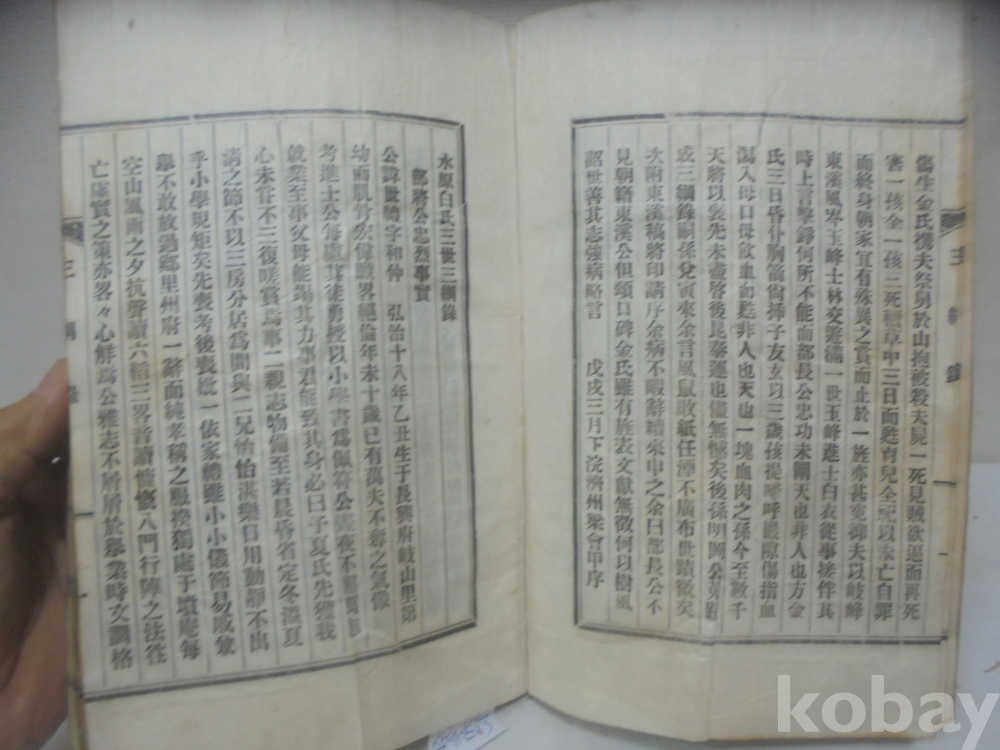 傷生金氏携夫祭舅於山抱被殺夫屍一死見賊欲逼而再死
害一孩全一孩三死積草中三日而甦育兒全祀以未亡自罪
而終身朝家宜有殊異之賞而止於一旌亦甚寃抑夫以岐峰
東溪風岑玉峰士林交遊滿一世玉峰進士白衣從事接伴其
時上言擊錚何所不能而部長公忠功未闡天也非人也方金
氏三日昏仆胸箭尙揷子友玄以三歲孩提呼呼嚴隙傷指血
瀉入母口母飮血而甦非人也天也一塊血肉之孫今至數千
天將以褒先未盡啓後昆泰運也儘無憾矣後孫明岡公
成三綱錄嗣孫兌寅來余言風鼠敗紙任湮不廣布世蹟微矣
次附東溪稿將印請序余病不暇辭啨來申之余曰部長公不
見朝籍東溪公但頌口碑金氏雖有旌表文獻無徵何以樹風
詔世善其志強病略言 戊戌三月下浣濟州梁會甲序
三綱錄
水原白氏三世三綱錄
部將公忠烈事實
公諱世 字和仲 弘治十八年乙丑生于長興府岐山里第
幼而肌骨宏偉膽畧絕倫年未十歲已有萬夫不奪之氣像
考進士公每處 徒勇授以小學書爲佩符公 夜不
就業至事父母能竭其力事君能致其身必曰子夏氏先獲我
心未甞不三復嗟賞焉事二親志物備至若晨昏省定冬溫夏
凊之節不以三房分居爲間與二兄怡怡湛樂日用動靜不出
乎小學規矩矣先喪考後喪妣一依家禮雖小小儀節易戚兼
擧不敢放過鄕里州府一辭而純孝稱之服 獨處于墳庵每
空山風雨之夕抗聲讀六韜三畧音讀慷慨八門行陣之法徃
亡虛實之策亦畧々心解爲公雅志不屑屑於擧業時文調格
三綱錄